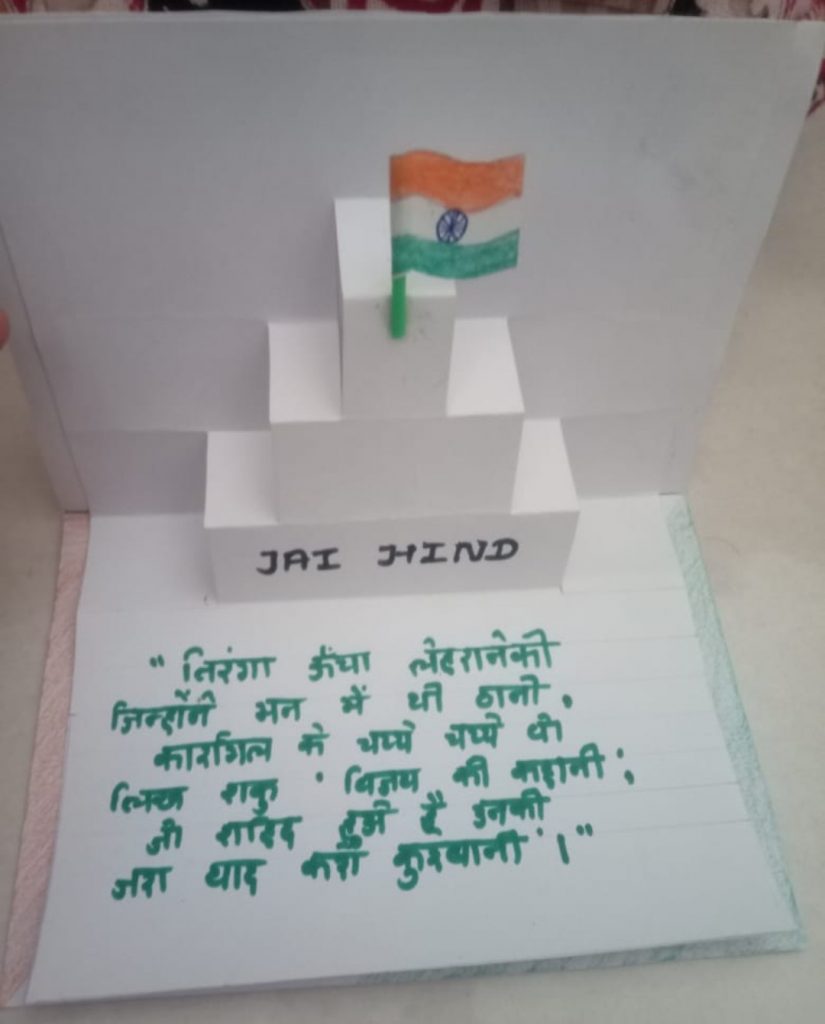 JAI HIND
"तिरंगा ऊँचा लेहरानेकी
जिन्होंने मन में थी ठानी,
कारगिल के चप्पे चप्पे थी
लिख शकु 'विजय की कहानी',
जो शहिद हुऐ है उनकी
जरा याद करो कुरबानी।"